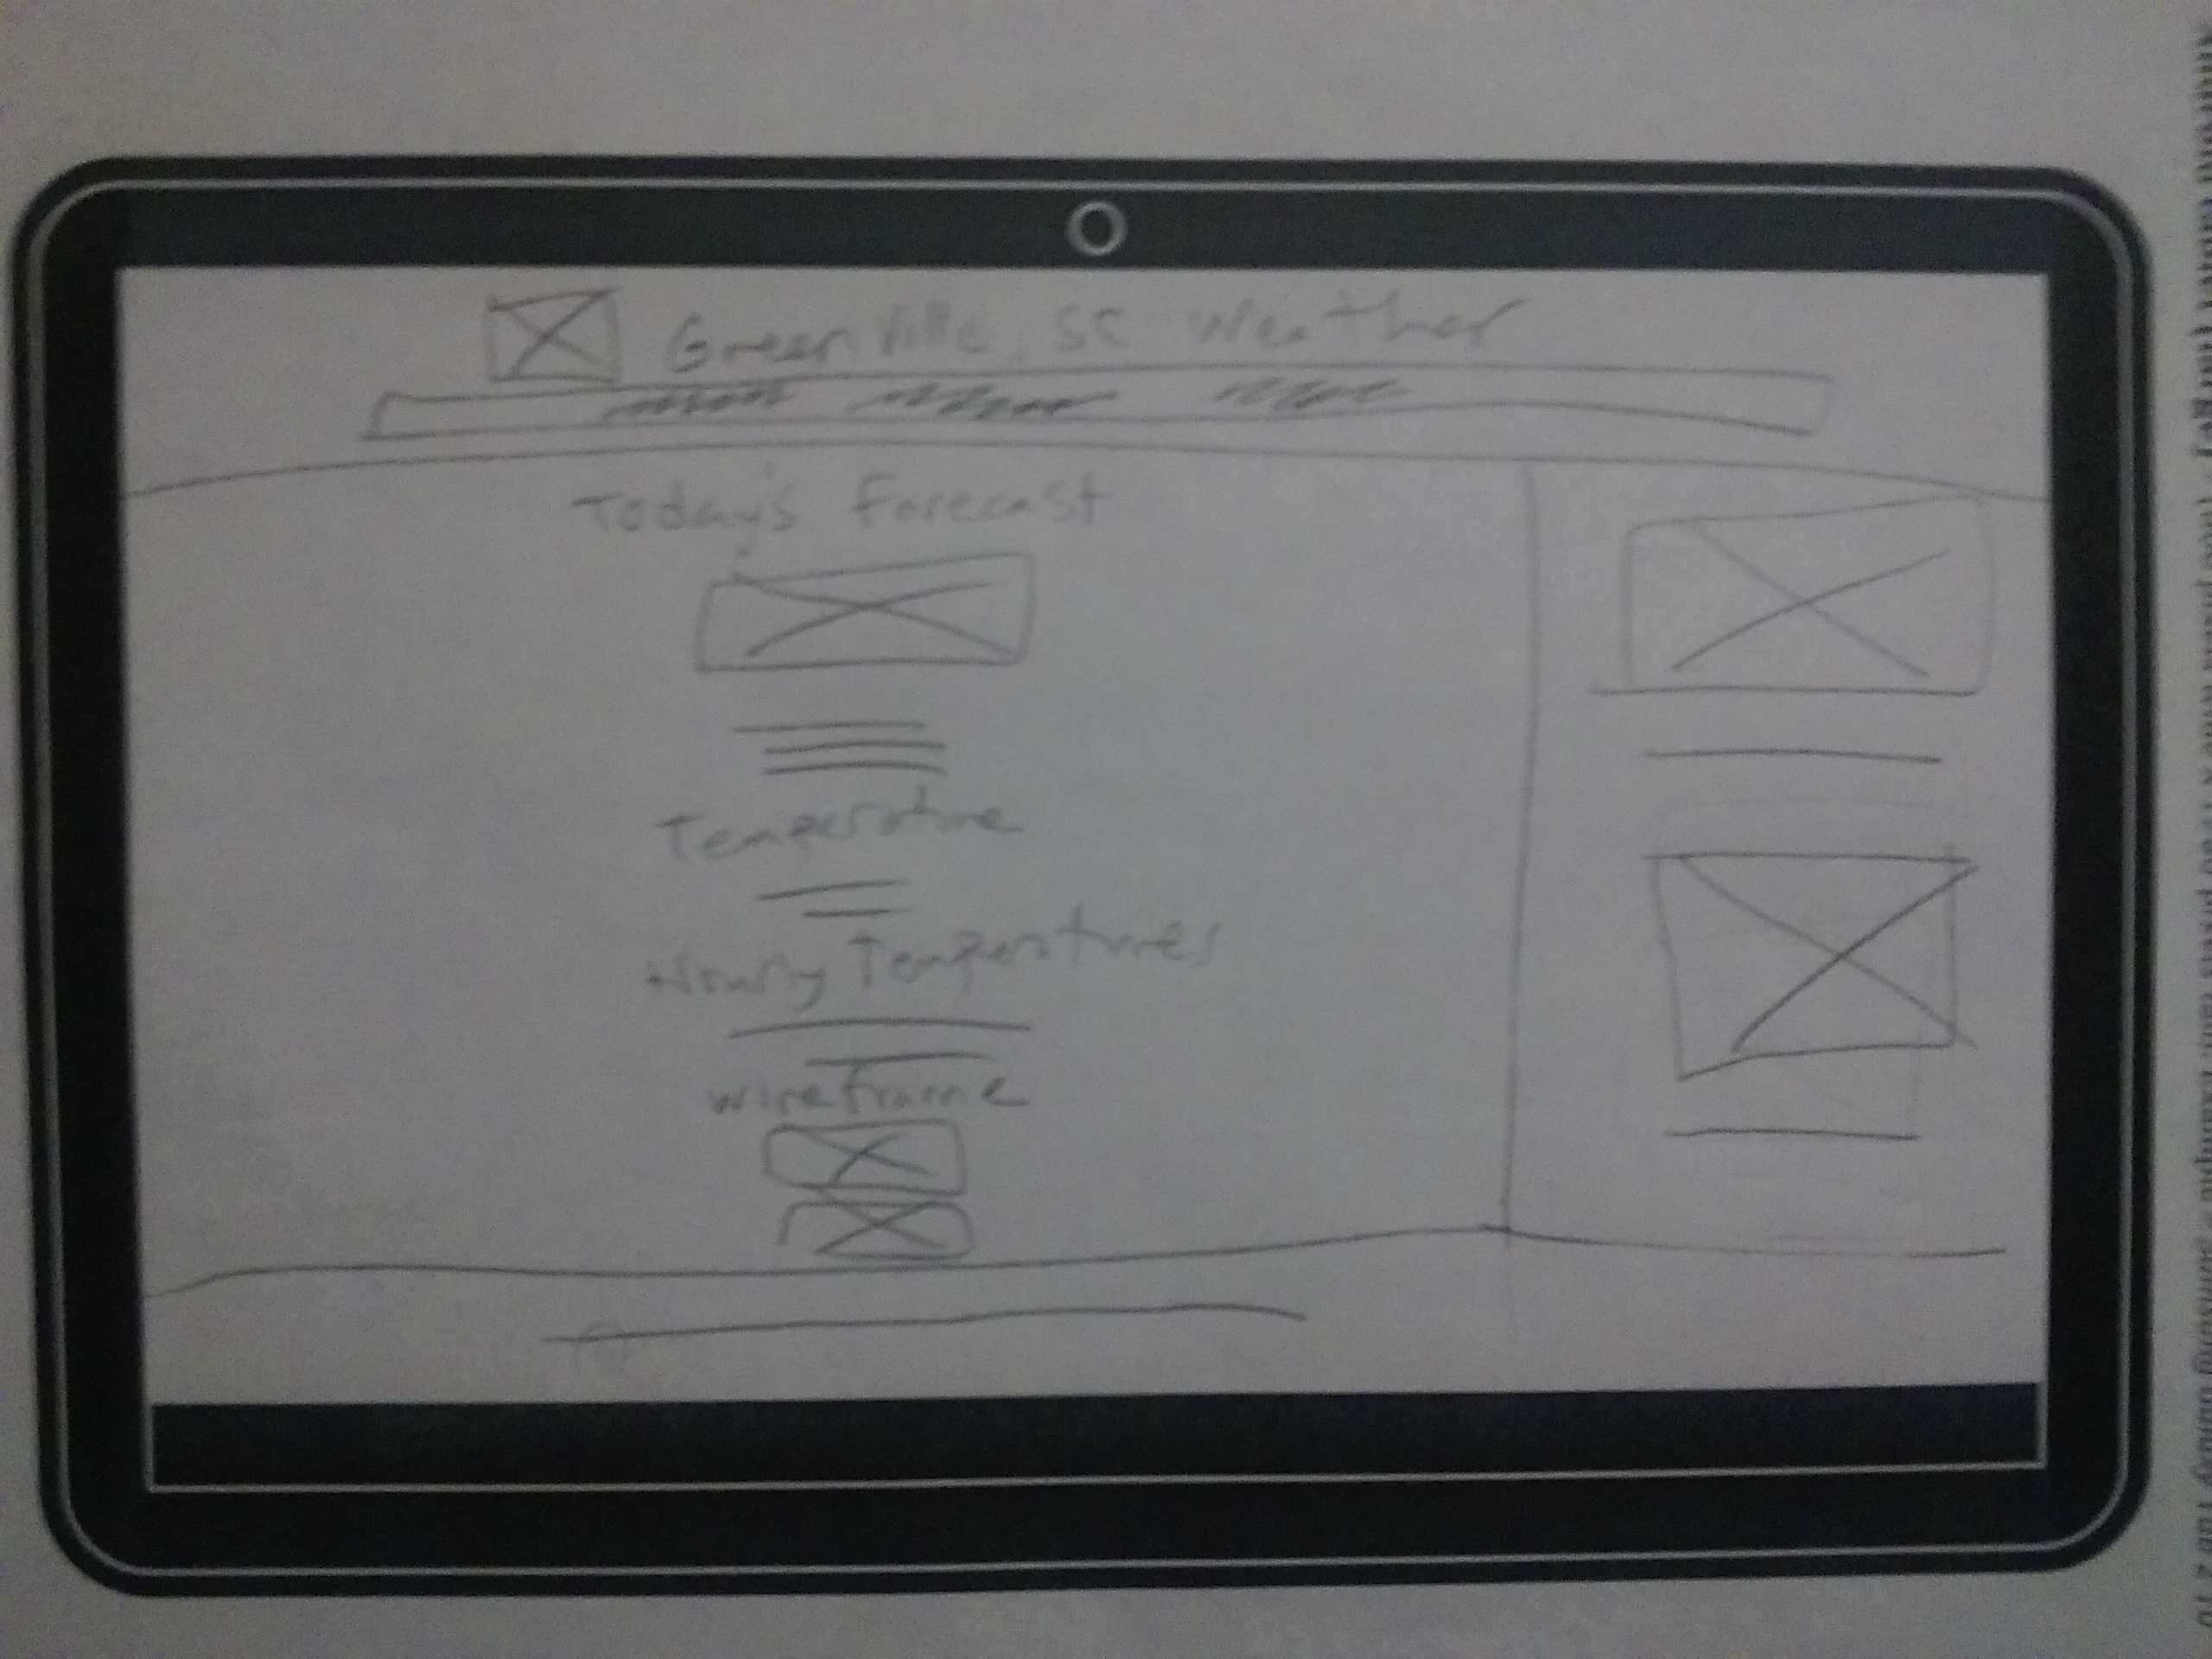 Greenville, SC Weather
Today's Forecast
Temperature
Hourly Temperatures
Wireframe